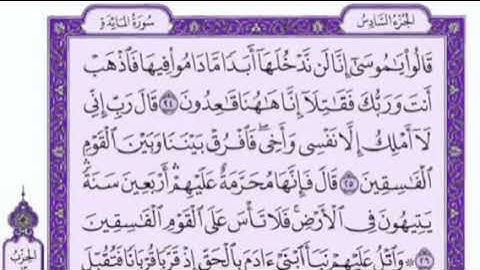 الجزء السادس
سورة المائدة
قَالُوا۟ يَٰمُوسَىٰٓ إِنَّا لَن نَّدْخُلَهَآ أَبَدًا مَّا دَامُوا۟ فِيهَا فَٱذْهَبْ
أَنتَ وَرَبُّكَ فَقَٰتِلَآ إِنَّا هَٰهُنَا قَٰعِدُونَ ٢٤ قَالَ رَبِّ إِنِّى
لَآ أَمْلِكُ إِلَّا نَفْسِى وَأَخِى ۖ فَٱفْرُقْ بَيْنَنَا وَبَيْنَ ٱلْقَوْمِ
ٱلْفَٰسِقِينَ ٢٥ قَالَ فَإِنَّهَا مُحَرَّمَةٌ عَلَيْهِمْ ۛ أَرْبَعِينَ سَنَةً ۛ
يَتِيهُونَ فِى ٱلْأَرْضِ ۚ فَلَا تَأْسَ عَلَى ٱلْقَوْمِ ٱلْفَٰسِقِينَ
٢٦ وَٱتْلُ عَلَيْهِمْ نَبَأَ ٱبْنَىْ ءَادَمَ بِٱلْحَقِّ إِذْ قَرَّبَا قُرْبَانًا فَتُقُبِّلَ
الحزب